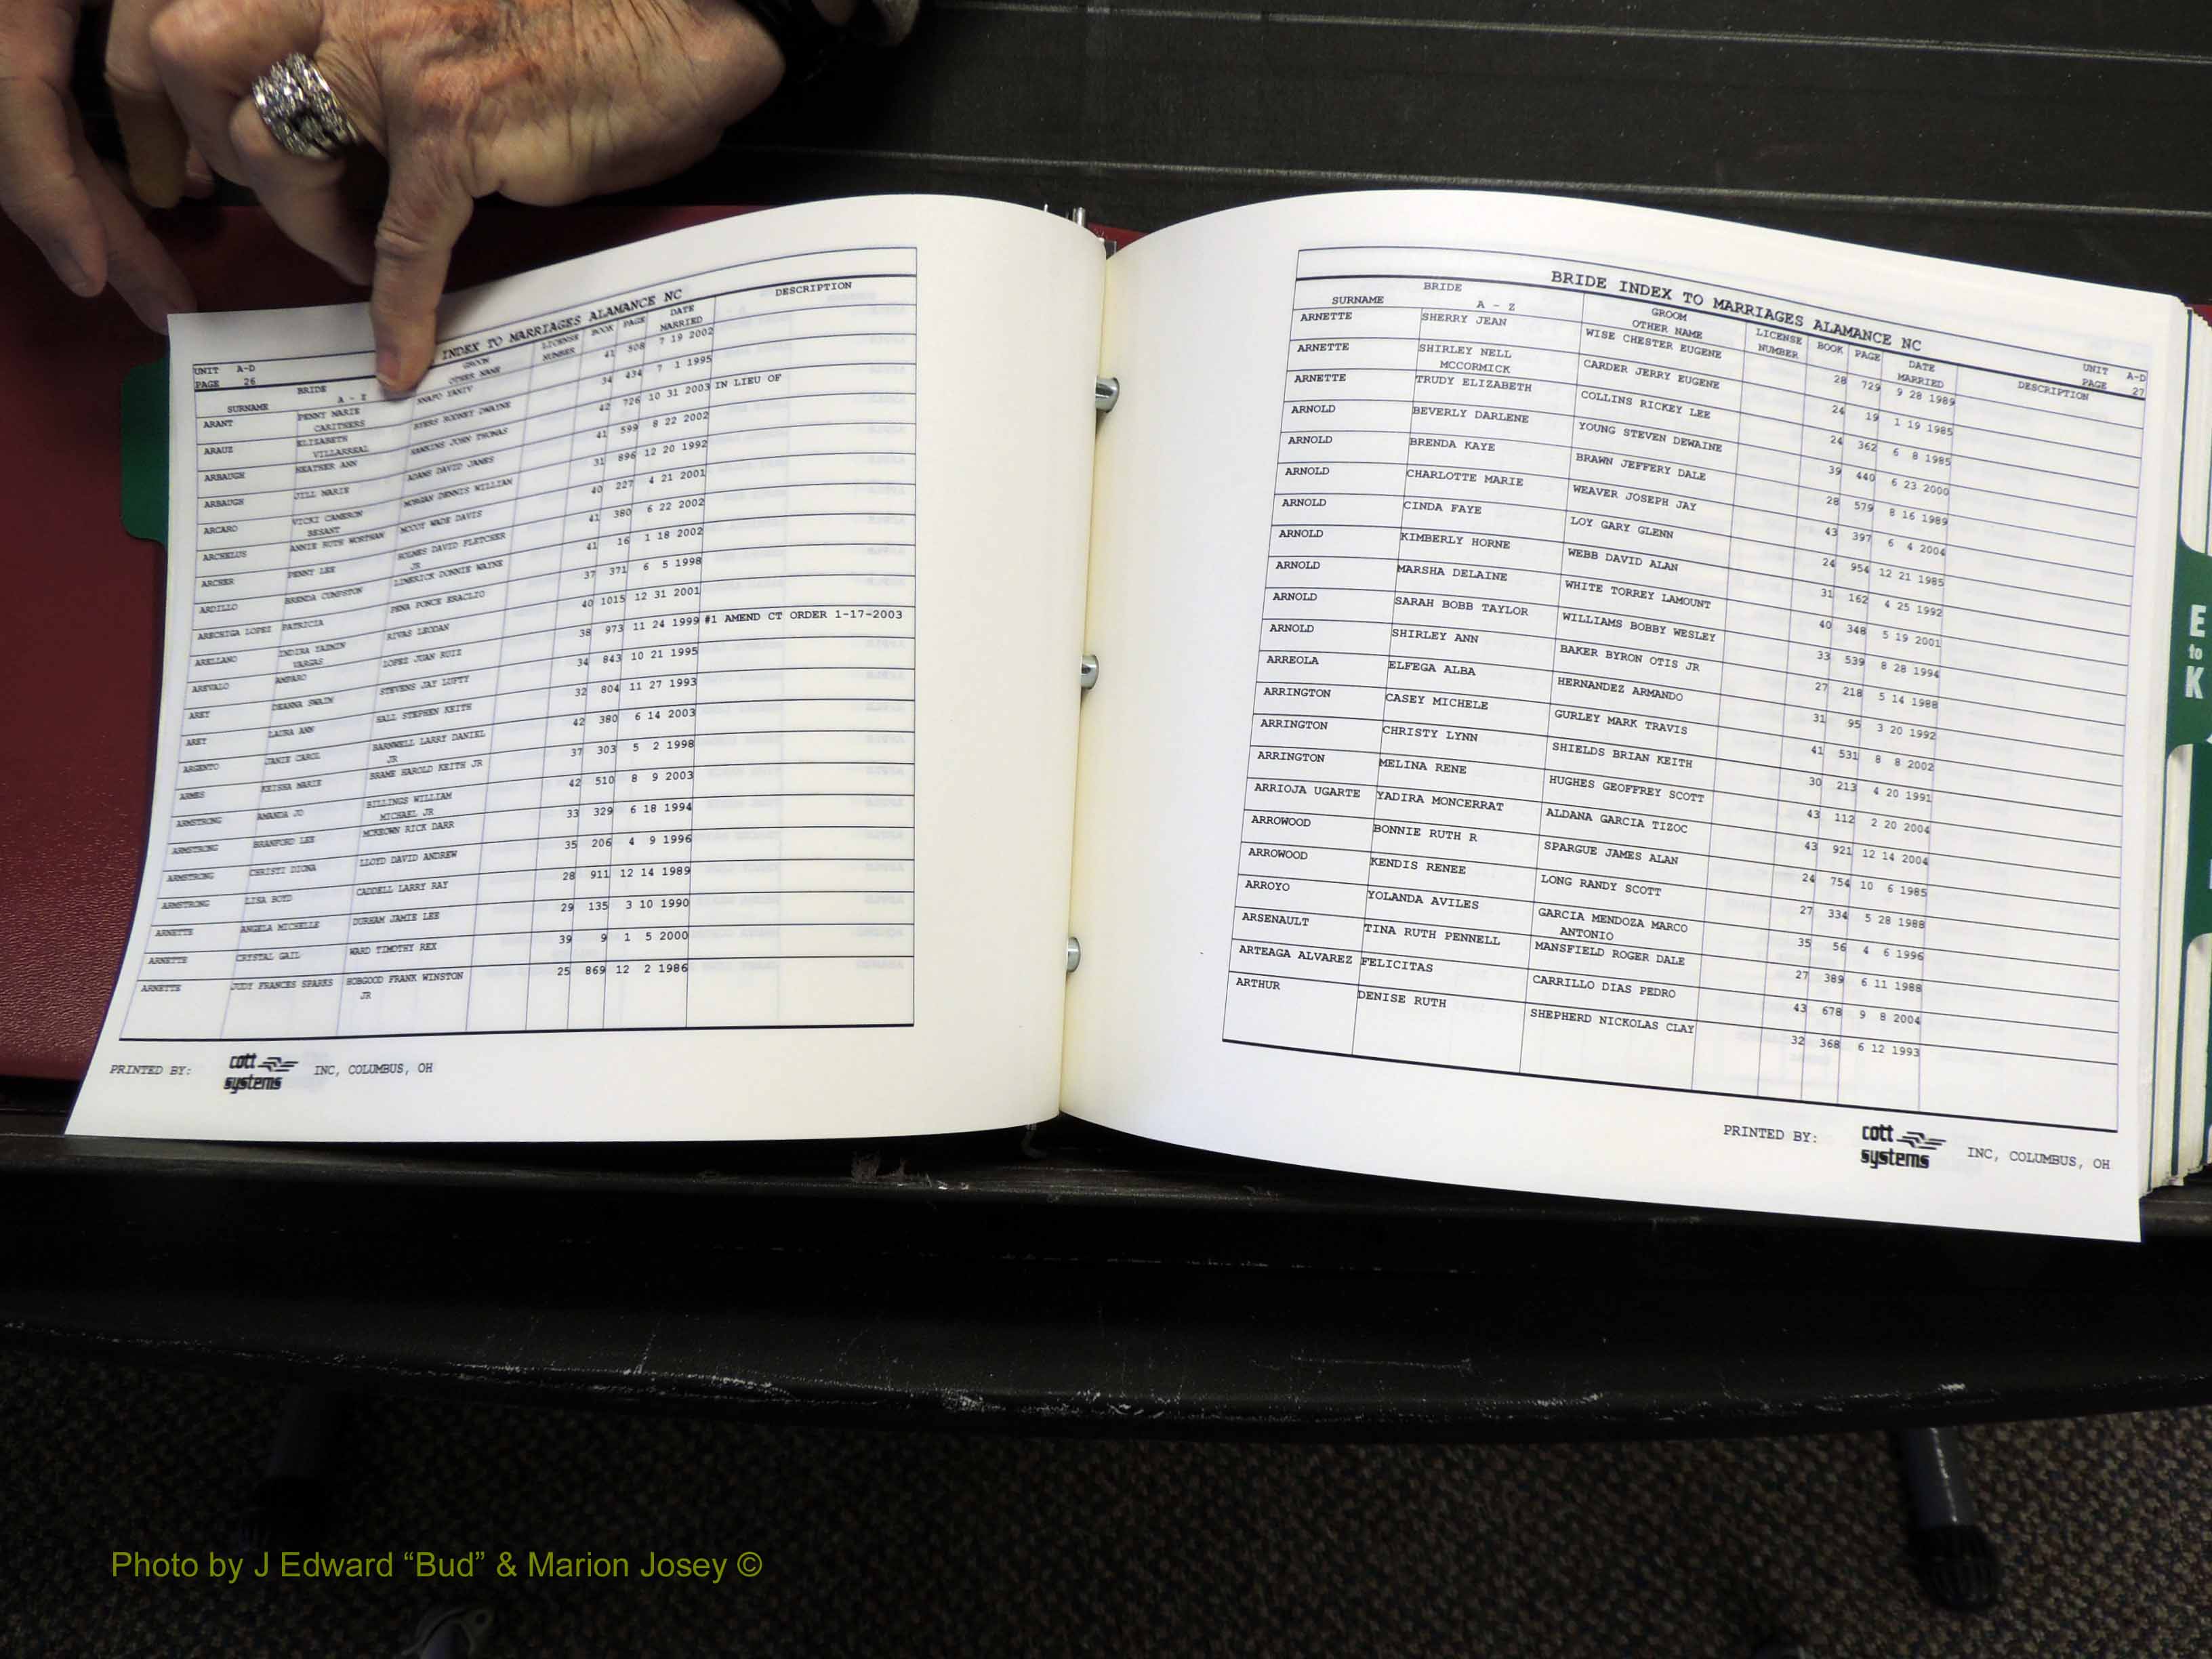 INDEX TO MARRIAGES ALAMANCE NC
UNIT A-D
PAGE 26
BRIDE GROOM LICENSE BOOK PAGE DATE DESCRIPTION
SURNAME A - Z OTHER NAME NUMBER MARRIED
ARANT PENNY MARIE 41 508 7 19 2002
CARITHERS
ARAUZ ELIZABETH BYERS RODNEY DWAYNE 34 434 7 1 1995
VILLARREAL
ARBAUGH HEATHER ANN HAWKINS JOHN THOMAS 42 726 10 31 2003 IN LIEU OF
ARBAUGH JILL MARIE ADAMS DAVID JAMES 41 599 8 22 2002
ARCARO VICKI CAMERON MORGAN DENNIS WILLIAM 31 896 12 20 1992
BESANT
ARCHELUS ANNIE RUTH WORTHAM MCCOY WADE DAVIS 40 227 4 21 2001
ARCHER PENNY LEE HOLMES DAVID FLETCHER 41 380 6 22 2002
JR
ARDILLO BRENDA CUMPSTON LIMERICK DONNIE WAYNE 41 16 1 18 2002
ARECHIGA LOPEZ PATRICIA PENA PONCE ERACLIO 37 371 6 5 1998
ARELLANO INDIRA YAZMIN RIVAS LEODAN 40 1015 12 31 2001
VARGAS
AREVALO AMPARO LOPEZ JUAN RUIZ 38 973 11 24 1999 #1 AMEND CT ORDER 1-17-2003
AREY DEANNA SWAIN STEVENS JAY 34 843 10 21 1995
AREY LAURA ANN HALL STEPHEN KEITH 32 804 11 27 1993
ARGENTO JANIE CAROL BARNWELL LARRY DANIEL 42 380 6 14 2003
JR
ARMES KEISHA MARIE BRAME HAROLD KEITH JR 37 303 5 2 1998
ARMSTRONG AMANDA JO BILLINGS WILLIAM 42 510 8 9 2003
MICHAEL JR
ARMSTRONG BRANFORD LEE MCKEOWN RICK DARR 33 329 6 18 1994
ARMSTRONG CHRISTI DIONA LLOYD DAVID ANDREW 35 206 4 9 1996
ARMSTRONG LISA BOYD CADDELL LARRY RAY 28 911 12 14 1989
ARNETTE ANGELA MICHELLE DURHAM JAMIE LEE 29 135 3 10 1990
ARNETTE CRYSTAL GAIL WARD TIMOTHY REX 39 9 1 5 2000
ARNETTE JUDY FRANCES SPARKS HOBGOOD FRANK WINSTON 25 869 12 2 1986
JR
PRINTED BY: cott systems INC, COLUMBUS, OH
BRIDE INDEX TO MARRIAGES ALAMANCE NC
UNIT A-D
PAGE 27
BRIDE GROOM LICENSE BOOK PAGE DATE DESCRIPTION
SURNAME A - Z OTHER NAME NUMBER MARRIED
ARNETTE SHERRY JEAN WISE CHESTER EUGENE 28 729 9 28 1989
ARNETTE SHIRLEY NELL CARDER JERRY EUGENE 24 19 1 19 1985
MCCORMICK
ARNETTE TRUDY ELIZABETH COLLINS RICKEY LEE 24 362 6 8 1985
ARNOLD BEVERLY DARLENE YOUNG STEVEN DEWAINE 39 440 6 23 2000
ARNOLD BRENDA KAYE BRAWN JEFFERY DALE 28 579 8 16 1989
ARNOLD CHARLOTTE MARIE WEAVER JOSEPH JAY 43 397 6 4 2004
ARNOLD CINDA FAYE LOY GARY GLENN 24 954 12 21 1985
ARNOLD KIMBERLY HORNE WEBB DAVID ALAN 31 162 4 25 1992
ARNOLD MARSHA DELAINE WHITE TORREY LAMOUNT 40 348 5 19 2001
ARNOLD SARAH BOBB TAYLOR WILLIAMS BOBBY WESLEY 33 539 8 28 1994
ARNOLD SHIRLEY ANN BAKER BYRON OTIS JR 27 218 5 14 1988
ARREOLA ELFEGA ALBA HERNANDEZ ARMANDO 31 95 3 20 1992
ARRINGTON CASEY MICHELE GURLEY MARK TRAVIS 41 531 8 8 2002
ARRINGTON CHRISTY LYNN SHIELDS BRIAN KEITH 30 213 4 20 1991
ARRINGTON MELINA RENE HUGHES GEOFFREY SCOTT 43 112 2 20 2004
ARRIOJA UGARTE YADIRA MONCERRAT ALDANA GARCIA TIZOC 43 921 12 14 2004
ARROWOOD BONNIE RUTH R SPARGUE JAMES ALAN 24 754 10 6 1985
ARROWOOD KENDIS RENEE LONG RANDY SCOTT 27 334 5 28 1988
ARROYO YOLANDA AVILES GARCIA MENDOZA MARCO 35 56 4 6 1996
ANTONIO
ARSENAULT TINA RUTH PENNELL MANSFIELD ROGER DALE 27 389 6 11 1988
ARTEAGA ALVAREZ FELICITAS CARRILLO DIAS PEDRO 43 678 9 8 2004
ARTHUR DENISE RUTH SHEPHERD NICKOLAS CLAY 32 368 6 12 1993
PRINTED BY: cott systems INC, COLUMBUS, OH
E
to
K
Photo by J Edward “Bud” & Marion Josey ©